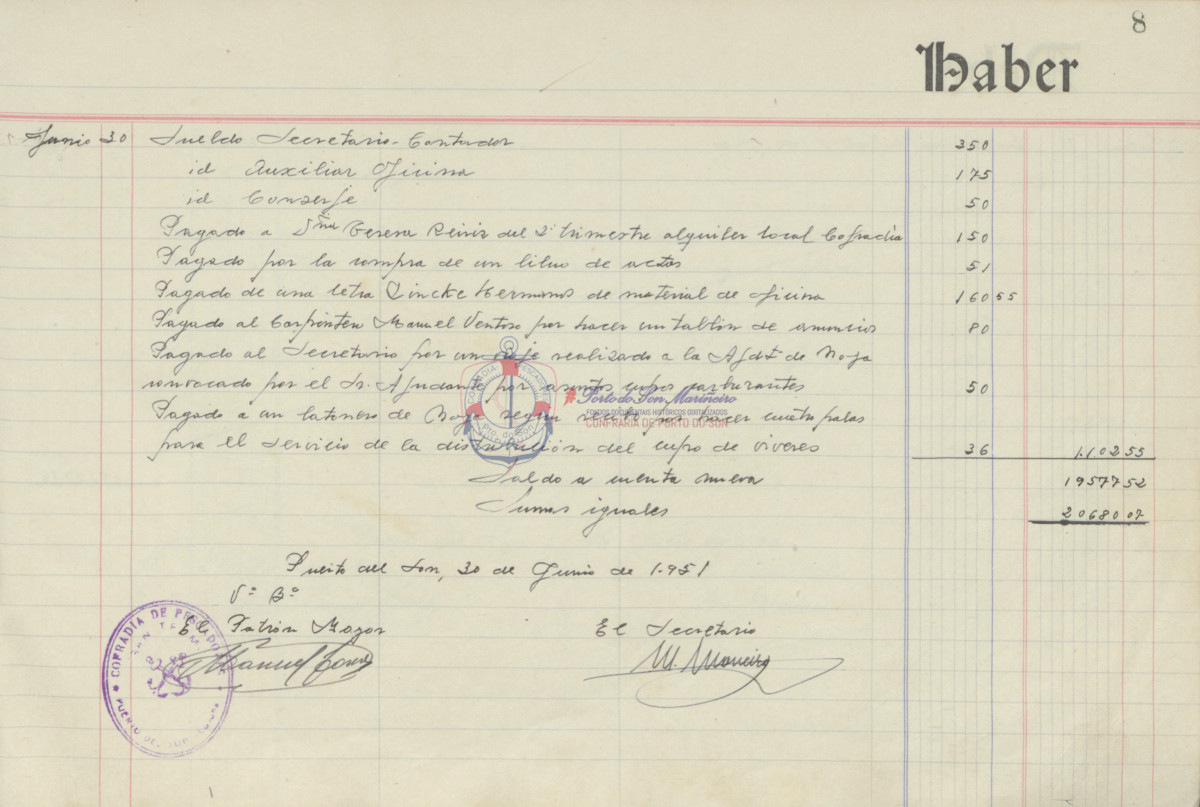 8
Haber
Junio 30 Sueldo Secretario-Contador 350
id Auxiliar Oficina 175
id Conserje 50
Pagado a Teresa del 2º trimestre alquiler local Cofradia 150
Pagado por la compra de un libro de actas 51
Pagado de una letra Hermanos de material de oficina 160 55
Pagado al Carpintero Manuel Ventoso por hacer un tablón de anuncios 80
Pagado al Secretario por un viaje realizado a la Ayd^t de Noya
convocado por el Sr. Ayudante por asuntos cupos carburantes 50
Pagado a un latonero de Noya según recibo por hacer cuatro palas
para el Servicio de la distribución del cupo de viveres 36 1.102 55
Saldo a cuenta nueva 19577 52
Sumas iguales 20680 07
Puerto del Son, 30 de Junio de 1.951
Vº Bº
El Patrón Mayor El Secretario
Manuel M. Maneiro
COFRADIA DE PESCADORES
PUERTO DEL SON
COFRADIA PESCADORES
Pto. do Son
#Porto do Son Mariñeiro
FONDOS DOCUMENTAIS HISTÓRICOS DIXITALIZADOS
CONFRARIA DE PORTO DO SON